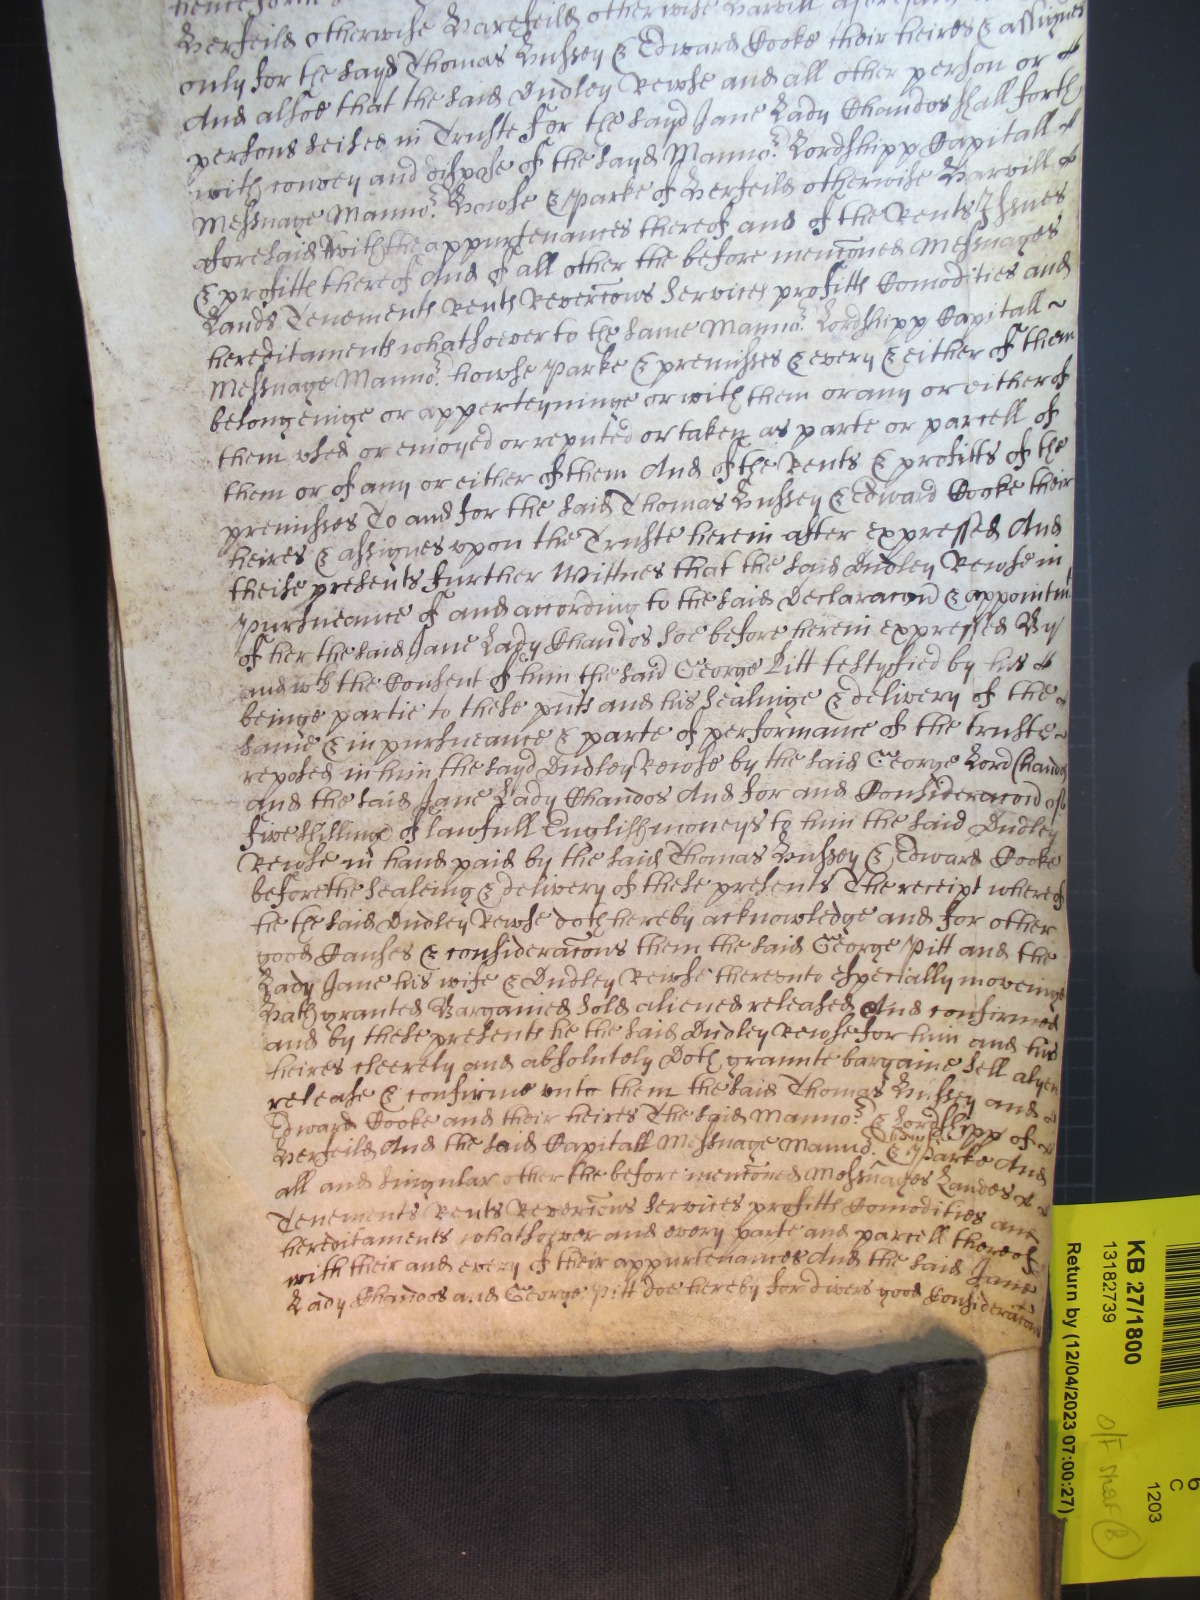 henceforth
Herfeild otherwise Harefeild otherwise Harvill
only for the sayd Thomas Hussey & Edward Cooke their heires & assignes
And alsoe that the said Dudley Rewse and all other person or
persons seised in Truste for the sayd Jane Lady Chandos shall forth
with convey and dispose of the sayd Mannor. Lordshipp Capitall
Messuage Mannor. Howse & Parke of Herfeild otherwise Harvill
aforesaid with the appurtenances thereof and of the Rents Issues
& profitts thereof And of all other the before mencōned Messuages
Lands Tenements Rents Revercōns Services profitts Comodities and
hereditaments whatsoever to the same Mannor. Lordshipp Capitall ~
Messuage Mannor. howse Parke & premisses & every & either of them
belongeinge or apperteyninge or with them or any or either of
them used or enioyed or reputed or taken as parte or parcell of
them or of any or either of them And of the Rents & profitts of the
premisses To and for the said Thomas Hussey & Edward Cooke their
heires & assignes upon the Truste herein after expressed And
theise presents further Wittnes that the said Dudley Rewse in
pursueance of and according to the said Declaracon & appointm
of her the said Jane Lady Chandos soe before herein expressed By
and wth the Consent of him the said George Pitt testyfied by his
beinge partie to these pnts and his sealinge & delivery of the
same & in pursueance & parte of performance of the truste
reposed in him the sayd Dudley Rewse by the said George Lord Chandos
And the said Jane Lady Chandos And for and Consideracon of
five shillings of lawfull English moneys to him the said Dudley
Rewse in hand paid by the said Thomas Hussey & Edward Cooke
before the sealeing & delivery of these presents The receipt whereof
he the said Dudley Rewse doth hereby acknowledge and for other
good Causes & consideracōns them the said George Pitt and the
Lady Jane his wife & Dudley Rewse thereunto especially moveinge
Hath granted Bargained sold aliened released And confirmed
and by these presents he the said Dudley Rewse for him and his
heires cleerely and absolutely Doth graunte bargaine sell alyen
release & confirme unto them the said Thomas Hussey and
Edward Cooke and their heires The said Mannor. & Lordshipp of
Herfeild And the said Capitall Messuage Mannor. howse & Parke And
all and singular other the before mencōned Messuages Landes
Tenements Rents Revercōns Services profitts Comodities and
hereditaments whatsoever and every parte and parcell thereof
with their and every of their appurtenances And the said Jane
Lady Chandos and George Pitt doe hereby for divers good Consideracōns
KB 27/1800
13182739
Return by (12/04/2023 07:00:27)
6
C
1203